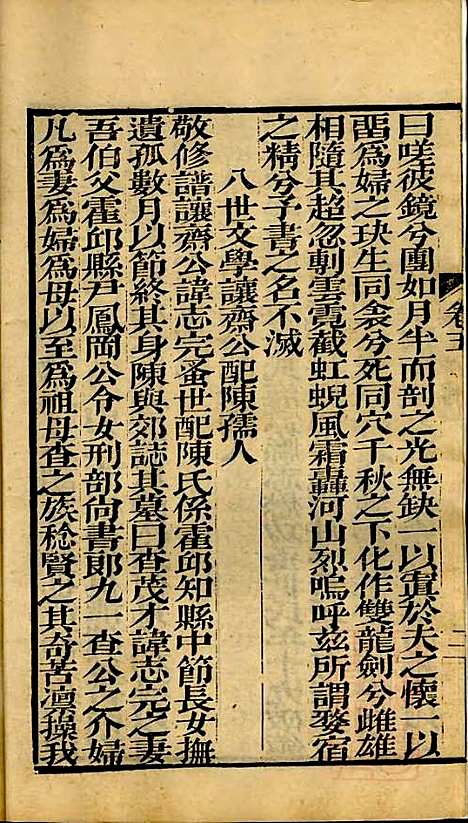 曰嗟彼鏡兮團如月半而剖之光無缺一以寘於夫之懷一以
畱爲婦之玦生同衾兮死同穴千秋之下化作雙龍劍兮雌雄
相隨其超忽剸雲霓截虹蜺風霜轟河山烈嗚呼兹所謂婺宿
之精兮予書之名不滅
八世文學讓齋公配陳孺人
敬修譜讓齋公諱志完蚤世配陳氏係霍邱知縣中節長女撫
遺孤數月以節終其身陳與郊誌其墓曰查茂才諱志完之妻
吾伯父霍邱縣尹鳳岡公令女刑部尙書郎九一查公之介婦
凡爲妻爲婦爲母以至爲祖母查之族稔賢之其奇苦凛操我
卷五
二